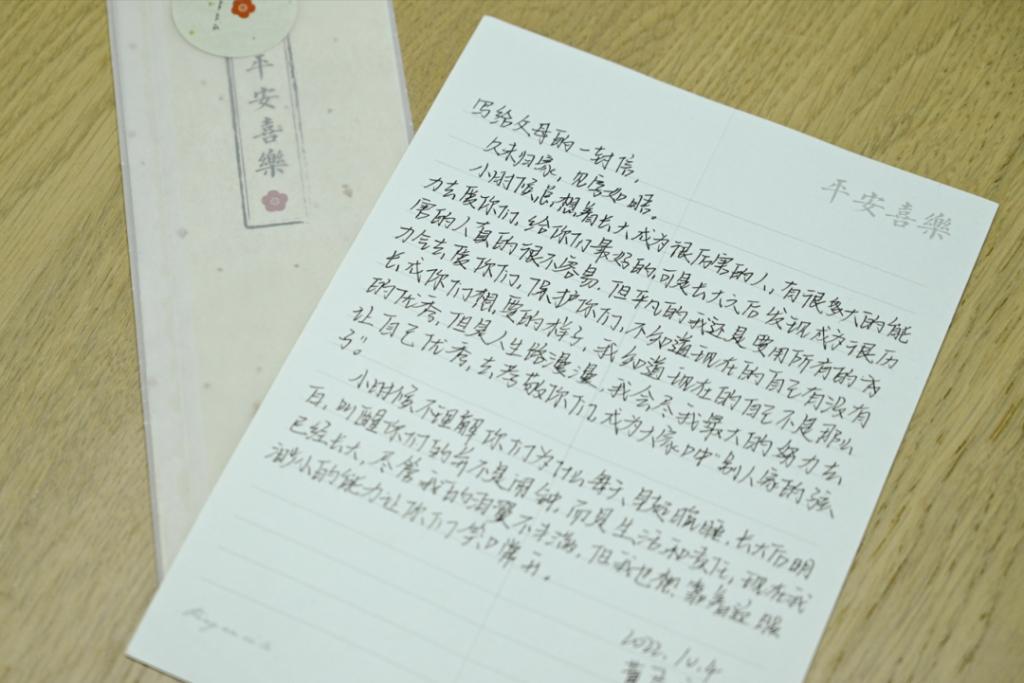 平安喜樂
平安喜樂
写给父母的一封信,
久未归家,见字如晤。
小时候总想着长大成为很厉害的人,有很多大的能
力去爱你们,给你们最好的,可是长大之后发现成为很厉
害的人真的很不容易.但平凡的我还是要用所有的
力气去爱你们,保护你们,不知道现在的自己有没有
长成你们想要的样子,我知道现在的自己不是那么
的优秀,但是人生路漫漫,我会尽我最大的努力去
让自己优秀,去孝敬你们,成为大家口中"别人家的孩
子"。
小时候不理解你们为什么每天早起晚睡,长大后明
白,叫醒你们的并不是闹钟,而是生活和责任,现在我
已经长大,尽管我的羽翼不丰满,但我也想靠着这眼
渺小的能力让你们笑口常开。
2022.10.4